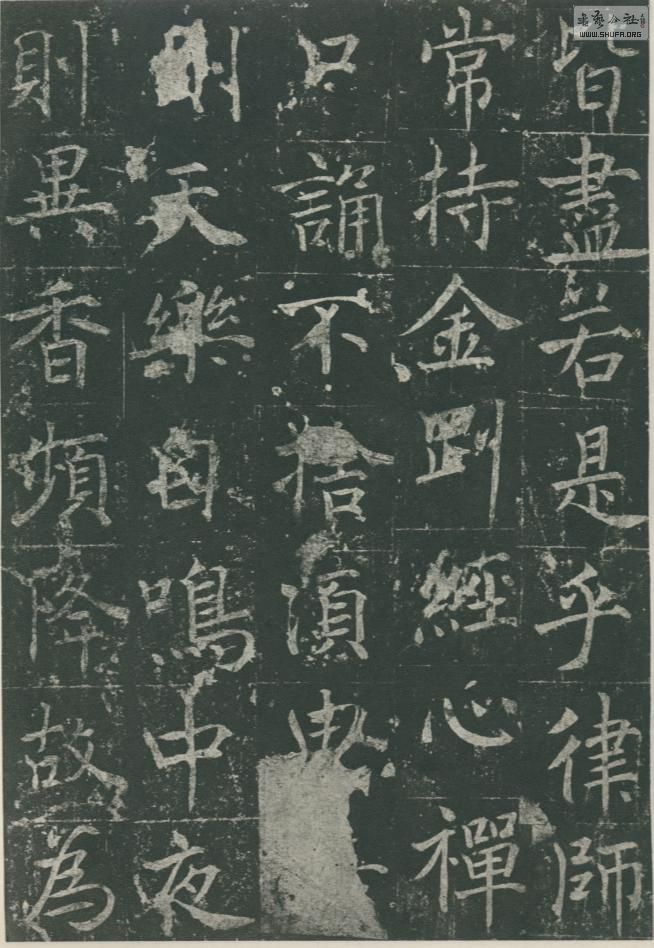 皆盡若是乎律師
常持金剛經心禪
口誦不捨湏臾
則天樂自鳴中夜
則異香頻降故為
書藝公社
WWW.SHUFA.ORG